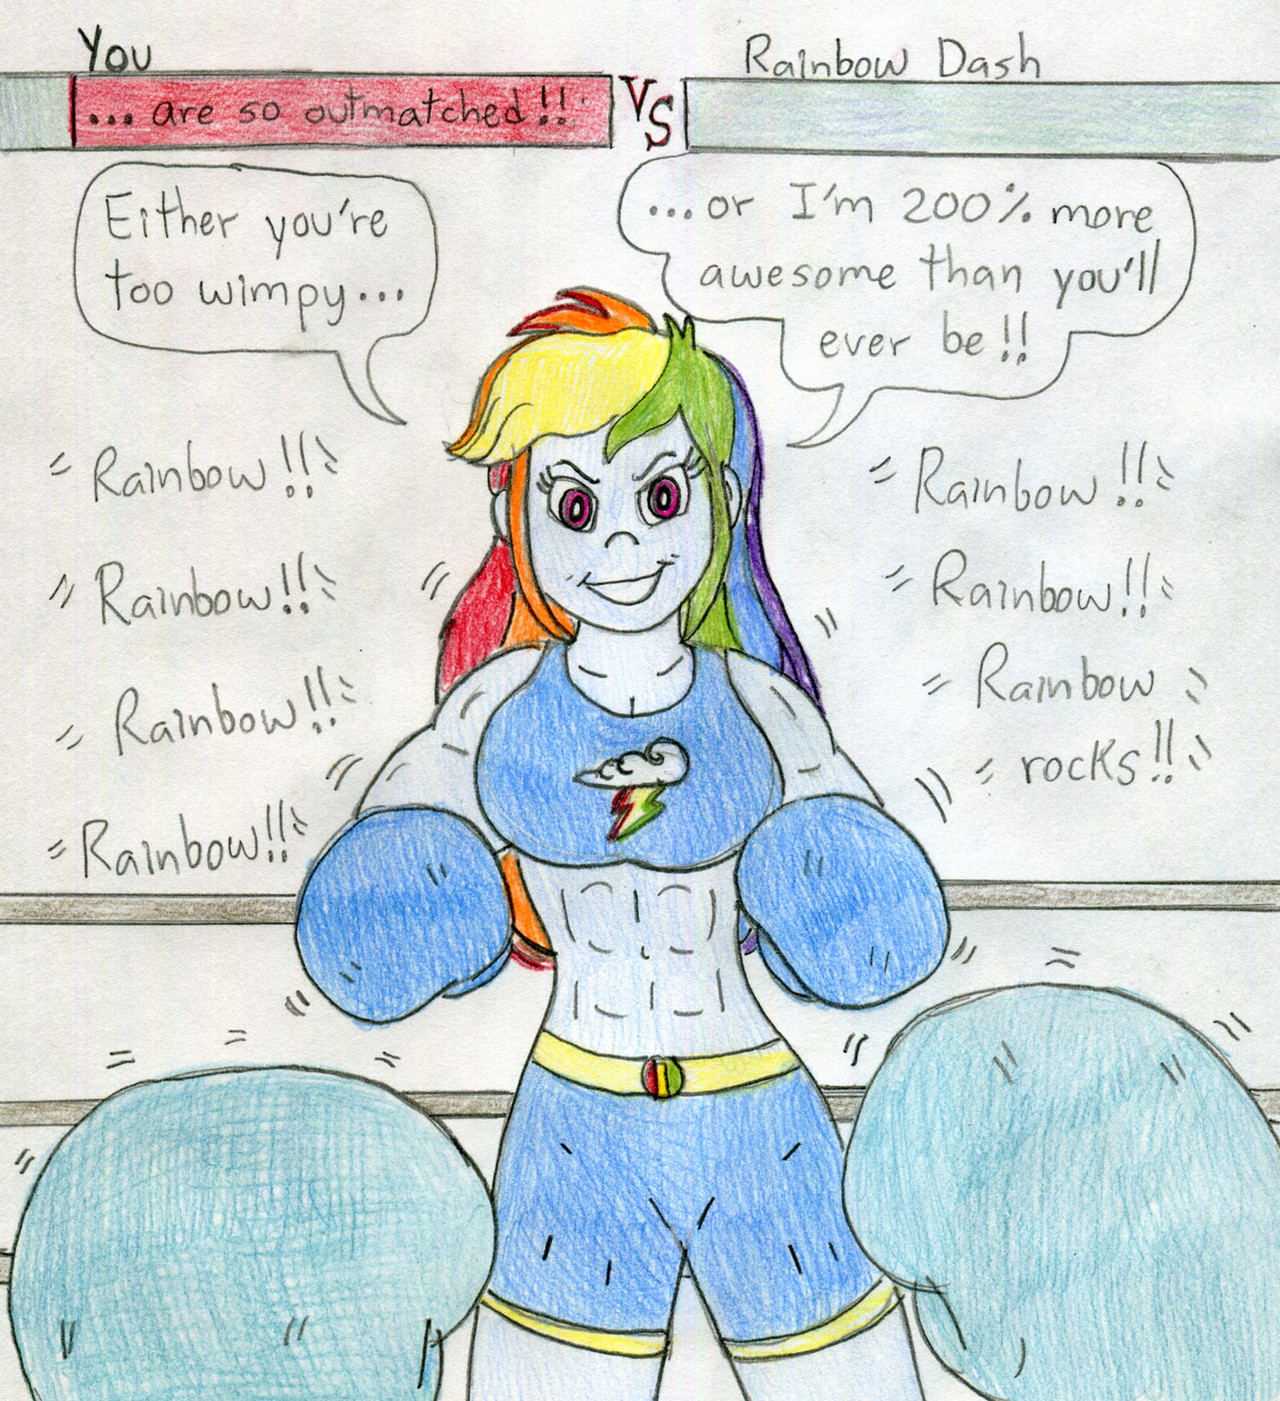 You
... are so outmatched!!
VS
Rainbow Dash
Either you're
too wimpy...
...or I'm 200% more
awesome than you'll
ever be!!
Rainbow!!
Rainbow!!
Rainbow!!
Rainbow!!
Rainbow!!
Rainbow!!
Rainbow
rocks!!